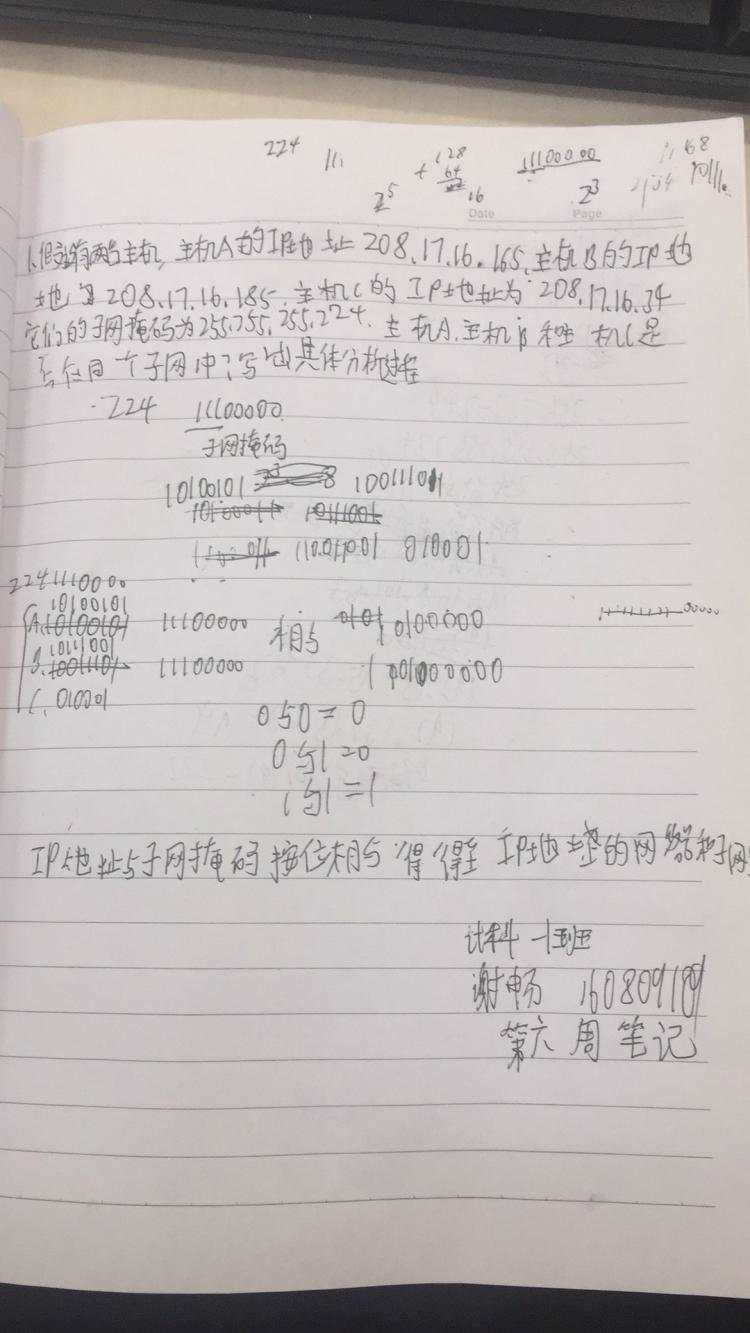 224 111
2^5
+128
64
16
11100000
2^3
68
Date Page
1.假设有两台主机,主机A的IP地址208.17.16.165,主机B的IP地
地为208.17.16.185.主机C的IP地址为208.17.16.34
它们的子网掩码为255.255.255.224.主机A.主机B和主机C是
否在同一个子网中?写出具体分析过程
224 11100000
子网掩码
10100101 10011101
11001001 010001
224 1110000
10100101
A. 10100101 11100000 相与 10100000
1011001
B. 10011101 11100000 101000000
C. 010001
0与0=0
0与1=0
1与1=1
IP地址与子网掩码按位相与得得到IP地址的网络和子网
计科一班
谢畅 160809189
第六周笔记